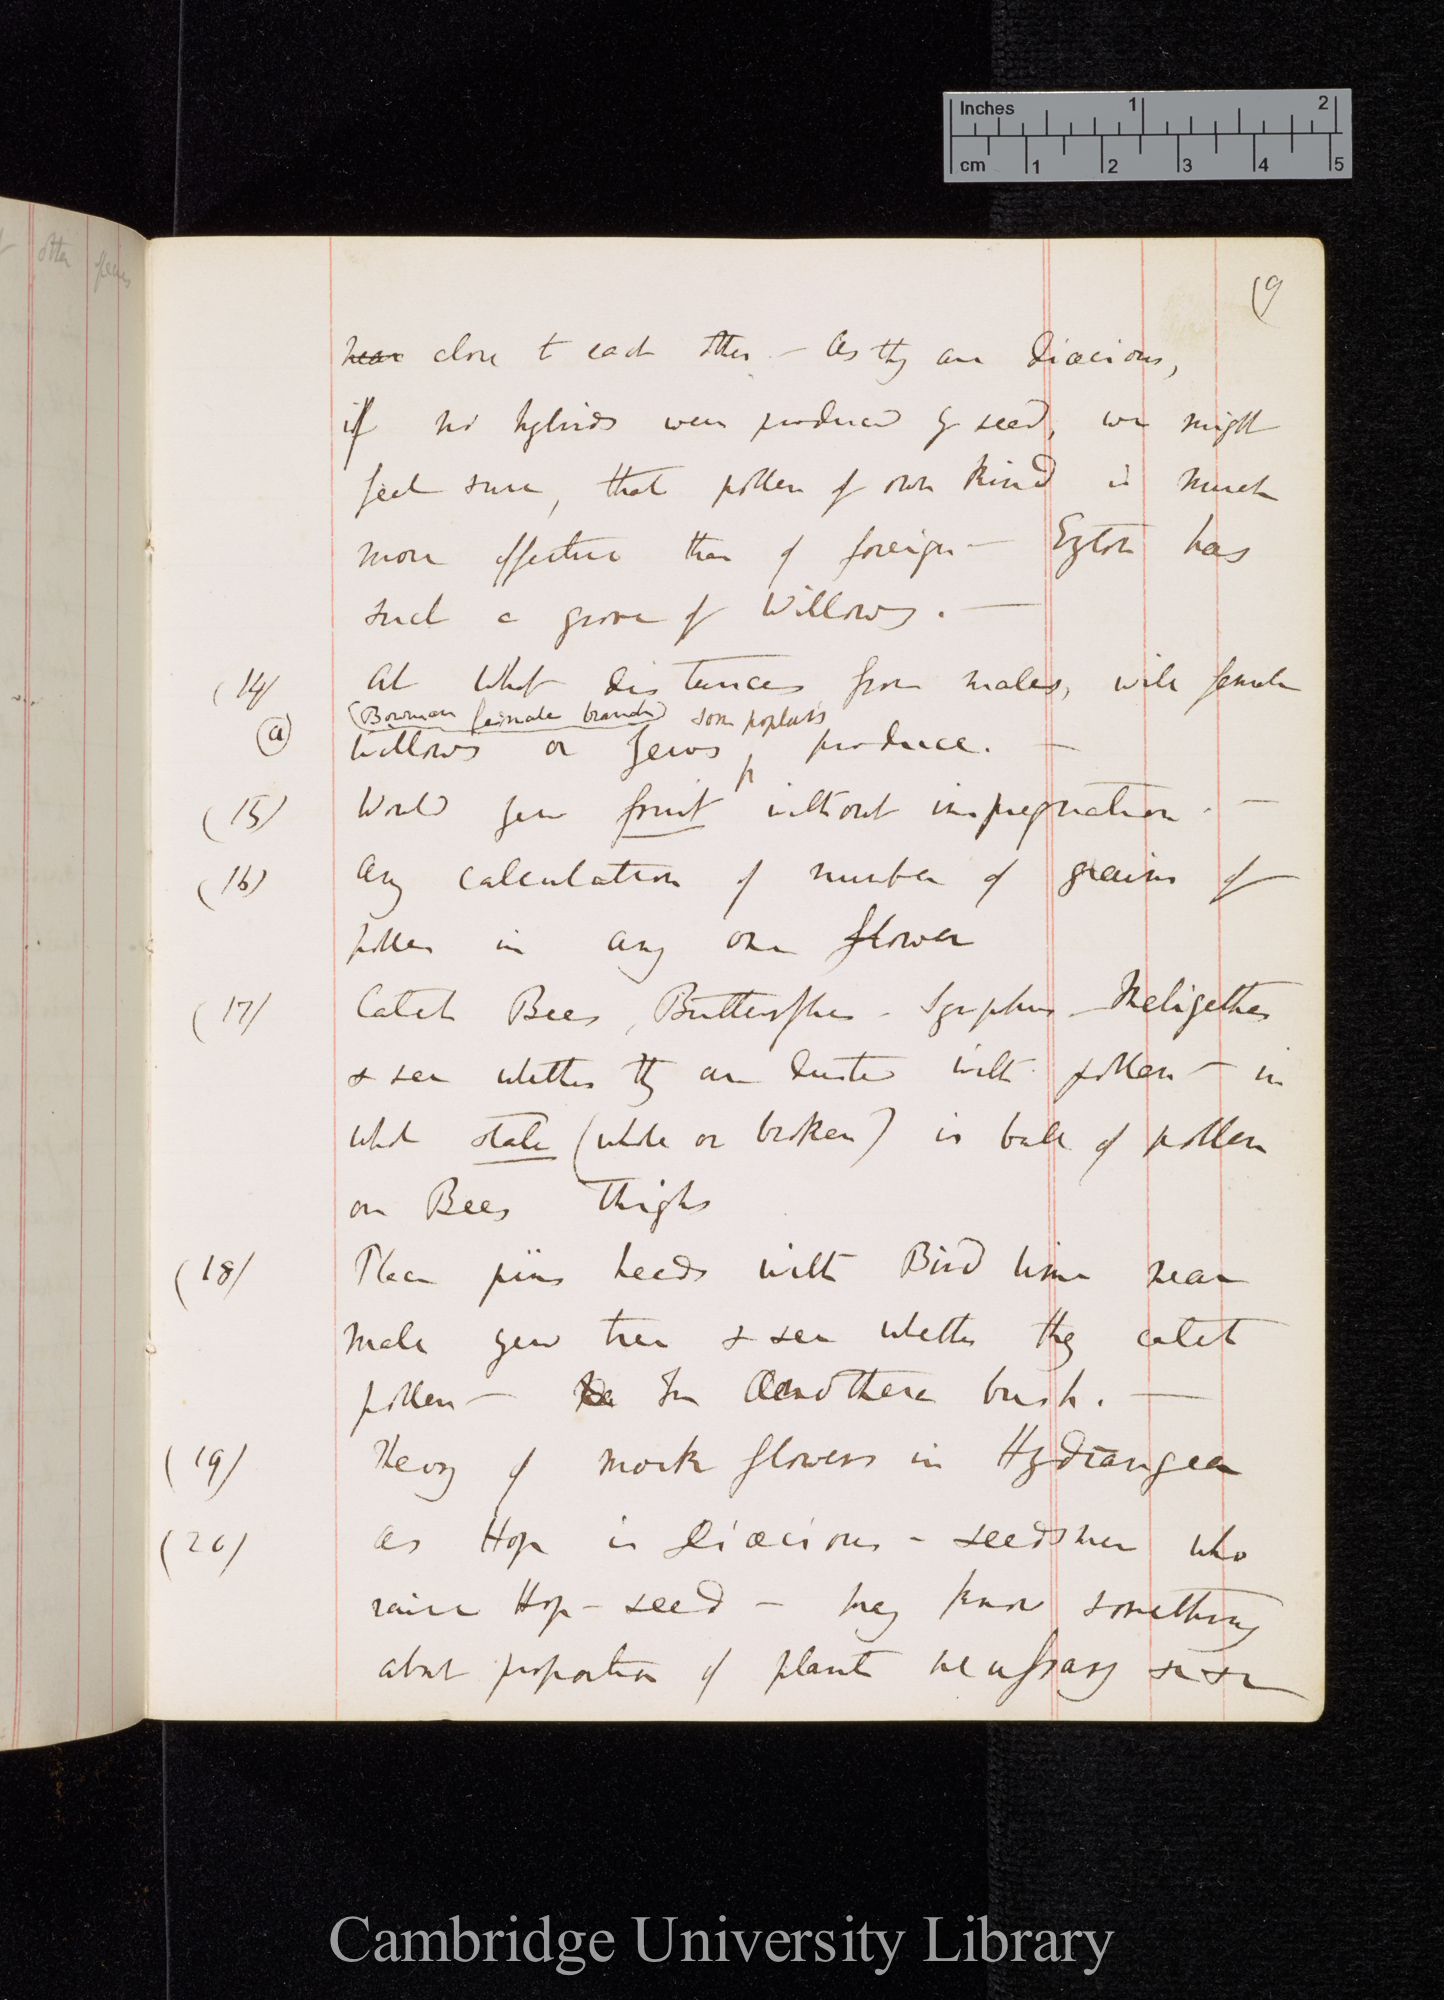 Inches 1 2
cm 1 2 3 4 5
other
(9
near close to each other — As they are diœcious,
if no hybrids were produced by seed, we might
feel sure, that pollen of own kind is much
more effective than of foreign — Eyton has
such a grove of Willows. —
(14) At what distances from males, will female
(Bowman female branch) some poplars
(a) Willows or Yews, produce. —
(15) Would yew fruit without impregnation. —
(16) Any calculation of number of grains of
pollen in any one flower
(17) Catch Bees, Butterflies - Syrphus - Meligethes
& see whether they are dusted with pollen — in
what state (whole or broken) is ball of pollen
on Bees Thighs
(18) Place pins heads with Bird lime near
male yew tree & see whether they catch
pollen — In another bush. —
(19) Theory of mock flowers in Hydrangea
(20) As Hop is diœcious - seedsmen who
raise Hop-seed — may know something
about proportion of plants necessary
Cambridge University Library